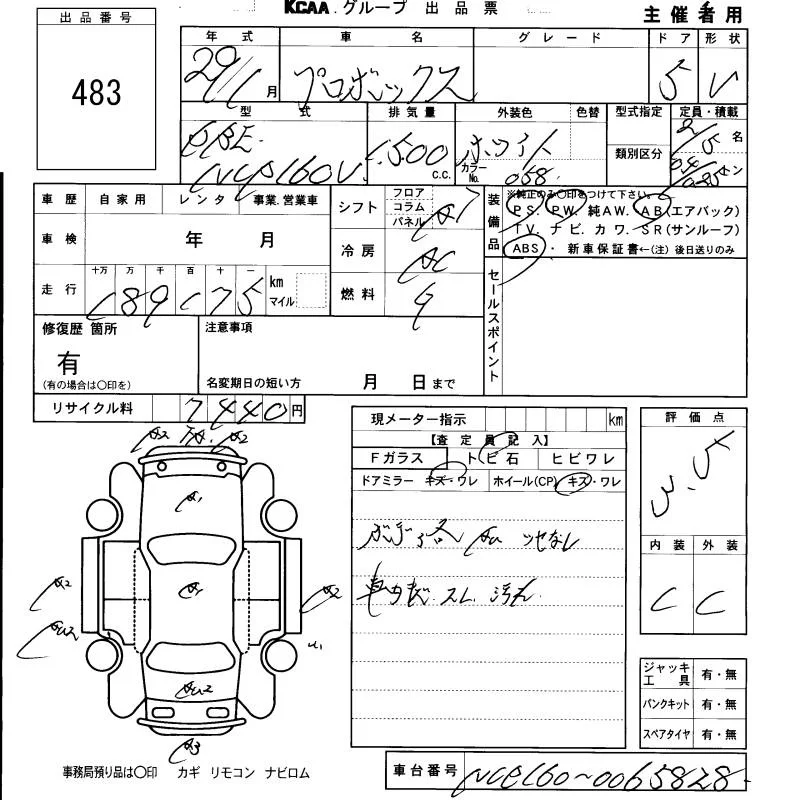 KCAA グループ 出品票
主催者用
出品番号
483
年式 車名 グレード ドア 形状
29/1月 プロボックス 5 V
型式 排気量 外装色 色替 型式指定 定員・積載
DBE
NCP160V 1500 c.c. ホワイト カラーNo. 058 類別区分 2/5名
トン
車歴 自家用 レンタ 事業.営業車
シフト フロア コラム パネル A7
装備品 ※純正のみ〇印をつけて下さい。
PS. PW. 純AW. AB(エアバック)
TV. ナビ. カワ. SR(サンルーフ)
ABS・新車保証書←(注)後日送りのみ
車検 年 月
冷房 AC
走行 十万 万 千 百 十 一 km マイル
189175
燃料 G
セールスポイント
修復歴 箇所
有
(有の場合は〇印を)
注意事項
名変期日の短い方 月 日まで
リサイクル料 7440円
現メーター指示 km
【査定員記入】
Fガラス トビ石 ヒビワレ
ドアミラー キズ・ワレ ホイール(CP) キズ・ワレ
評価点
3.5
内装 外装
C C
A2 A2
A1
A1
A2 A2
AU2
U1
AU2
A3
ジャッキ工具 有・無
パンクキット 有・無
スペアタイヤ 有・無
事務局預り品は〇印 カギ リモコン ナビロム
車台番号 NCP160-0065828